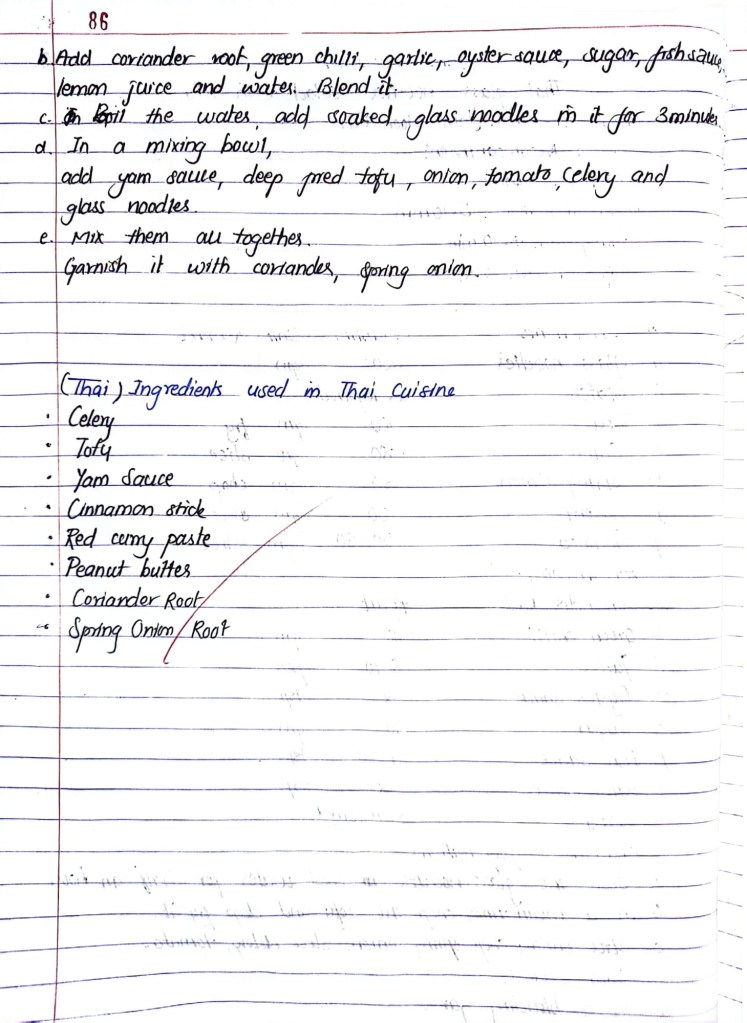 86
b. Add coriander root, green chilli, garlic, oyster sauce, sugar, fish sauce,
lemon juice and water. Blend it.
c. Boil the water, add soaked glass noodles in it for 3 minutes
d. In a mixing bowl,
add yam sauce, deep fried tofu, onion, tomato, celery and
glass noodles.
e. Mix them all together.
Garnish it with coriander, spring onion.
(Thai) Ingredients used in Thai Cuisine
• Celery
• Tofu
• Yam Sauce
• Cinnamon stick
• Red curry paste
• Peanut butter
• Coriander Root
• Spring Onion Root